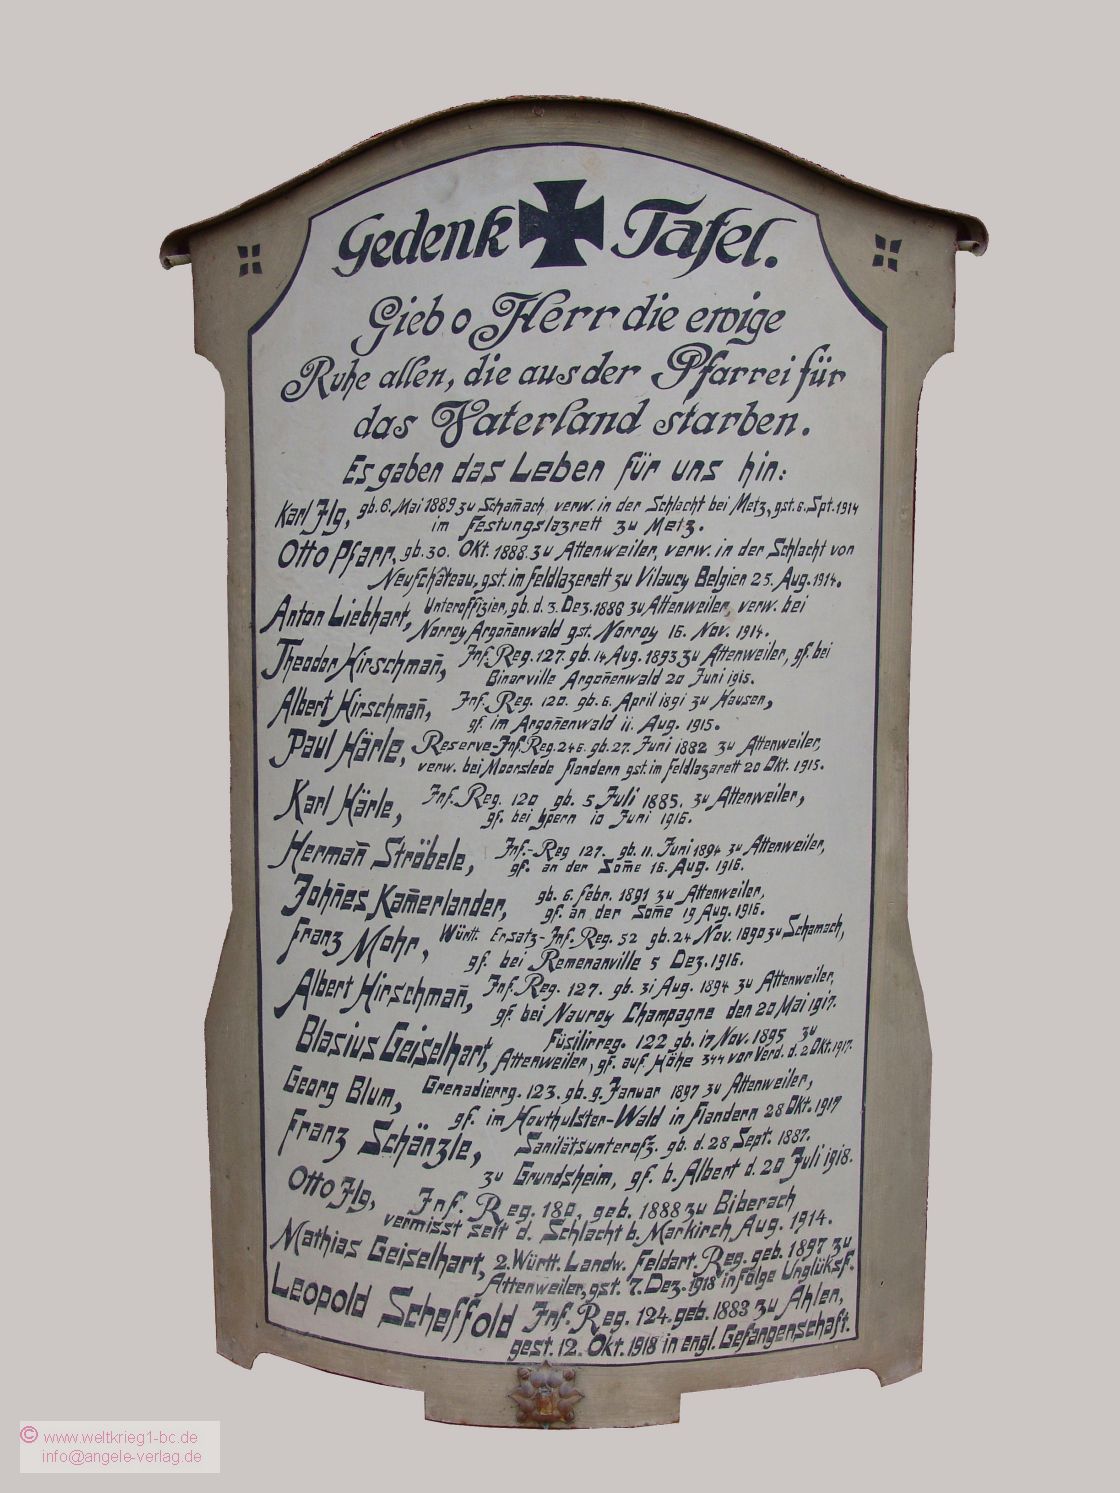 Gedenk Tafel.
Gieb o Herr die ewige
Ruhe allen, die aus der Pfarrei für
das Vaterland starben.
Es gaben das Leben für uns hin:
Karl Jlg, gb. 6. Mai 1889 zu Scham̄ach, verw. in der Schlacht bei Metz, gst. 6. Spt. 1914
im Festungslazrett zu Metz.
Otto Pfarr, gb. 30. Okt. 1888. zu Attenweiler, verw. in der Schlacht von
Neufchâteau, gst. im Feldlazerett zu Vilaucy Belgien 25. Aug. 1914.
Anton Liebhart, Unteroffizier, gb. d. 3. Dez. 1886 zu Attenweiler, verw. bei
Norroy Argon̄enwald gst. Norroy 16. Nov. 1914.
Theodor Hirschman̄, Jnf. Reg. 127. gb. 14 Aug. 1893 zu Attenweiler, gf. bei
Binarville Argon̄enwald 20 Juni 1915.
Albert Hirschman̄, Jnf. Reg. 120. gb. 6. April 1891 zu Hausen,
gf. im Argon̄enwald 11. Aug. 1915.
Paul Härle, Reserve-Jnf. Reg. 246. gb. 27. Juni 1882 zu Attenweiler,
verw. bei Moorslede Flandern gst. im Feldlazarett 20 Okt. 1915.
Karl Härle, Jnf. Reg. 120 gb. 5 Juli 1885. zu Attenweiler,
gf. bei Ypern 10 Juni 1916.
Herman̄ Ströbele, Jnf.-Reg 127. gb. 11. Juni 1894 zu Attenweiler,
gf. an der Som̄e 16. Aug. 1916.
John̄es Kam̄erlander, gb. 6. Febr. 1891 zu Attenweiler,
gf. an der Som̄e 19 Aug. 1916.
Franz Mohr, Württ. Ersatz-Jnf. Reg. 52 gb. 24 Nov. 1890 zu Schamach,
gf. bei Remenanville 5 Dez. 1916.
Albert Hirschman̄, Jnf. Reg. 127. gb. 31 Aug. 1894 zu Attenweiler,
gf. bei Nauroy Champagne den 20 Mai 1917.
Blasius Geiselhart, Füsilirreg. 122 gb. 17 Nov. 1895 zu
Attenweiler, gf. auf. Höhe 344 vor Verd. d. 2 Okt. 1917.
Georg Blum, Grenadierrg. 123. gb. 9. Januar 1897 zu Attenweiler,
gf. im Houthulster-Wald in Flandern 28 Okt. 1917
Franz Schänzle, Sanilätsunterofz. gb. d. 28 Sept. 1887.
zu Grundsheim, gf. b. Albert d. 20 Juli 1918.
Otto Jlg, Jnf. Reg. 180. geb. 1888 zu Biberach
vermisst seit d. Schlacht b. Markirch Aug. 1914.
Mathias Geiselhart, 2. Württ. Landw. Feldart. Reg. geb. 1897 zu
Attenweiler, gst. 7. Dez. 1918 infolge Unglüksf.
Leopold Scheffold Jnf. Reg. 124. geb. 1883 zu Ahlen,
gest. 12. Okt. 1918 in engl. Gefangenschaft.
© www.weltkrieg1-bc.de
info@angele-verlag.de